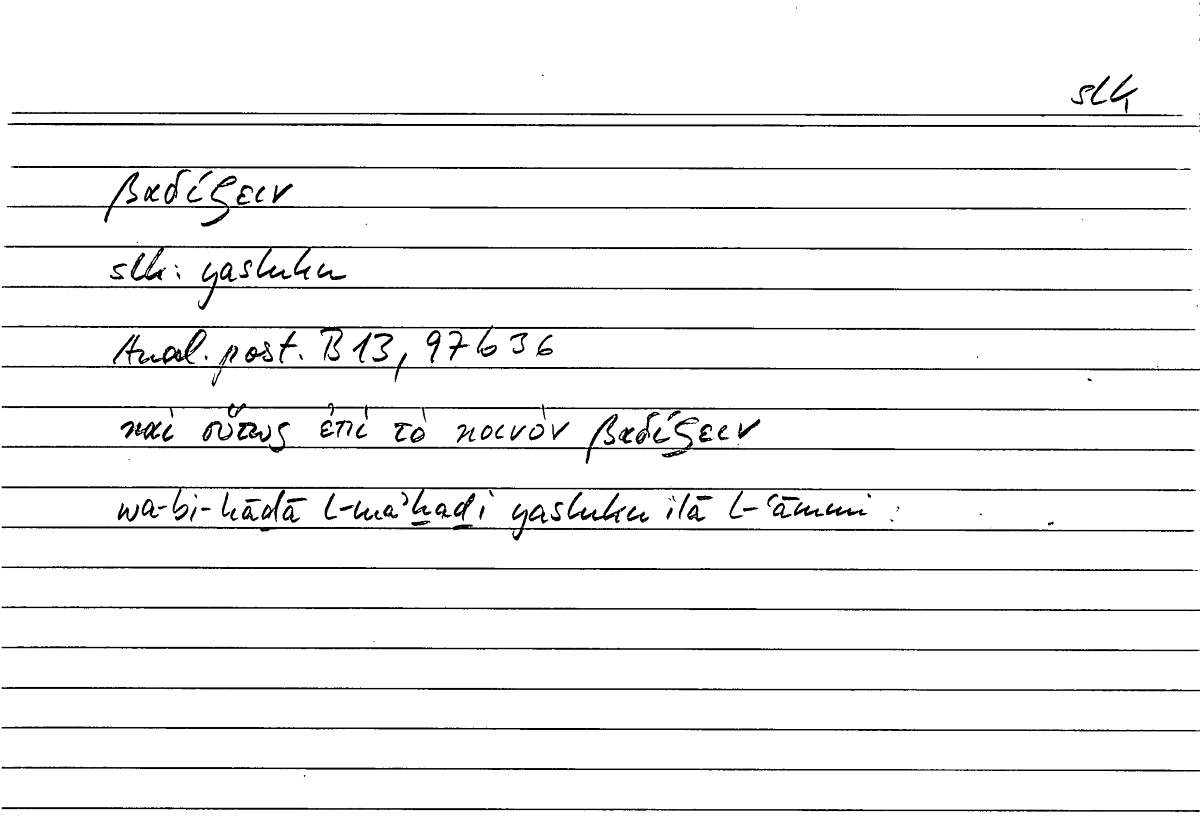 slk
βαδίζειν
slk: yasluku
Anal. post. B 13, 97 b 36
καὶ οὕτως ἐπὶ τὸ κοινὸν βαδίζειν
wa-bi-hāḏā l-maʾḫaḏi yasluku ilā l-ʿāmmi